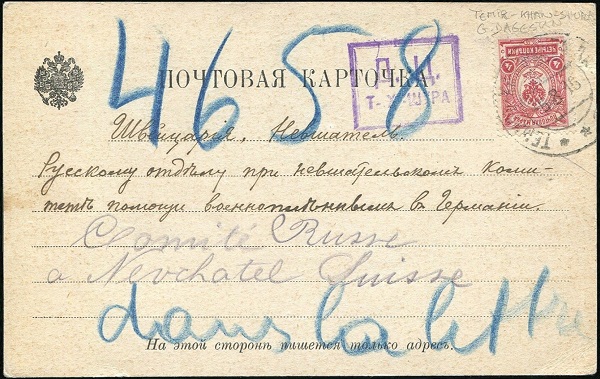 TEMIR-KHAN-SHURA
G. DAGESTAN
4658
ПОЧТОВАЯ КАРТОЧКА.
Д. Ц.
Т. Х. ШУРА
ЧЕТЫРЕ КОПѢЙКИ
4
Швейцарія, Невшатель.
Русскому отдѣлу при невшательском Коми-
тетѣ помощи военноплѣннымъ въ Германіи.
Comité Russe
a Nevchatel Suisse
dans la lettre
На этой сторонѣ пишется только адресъ.